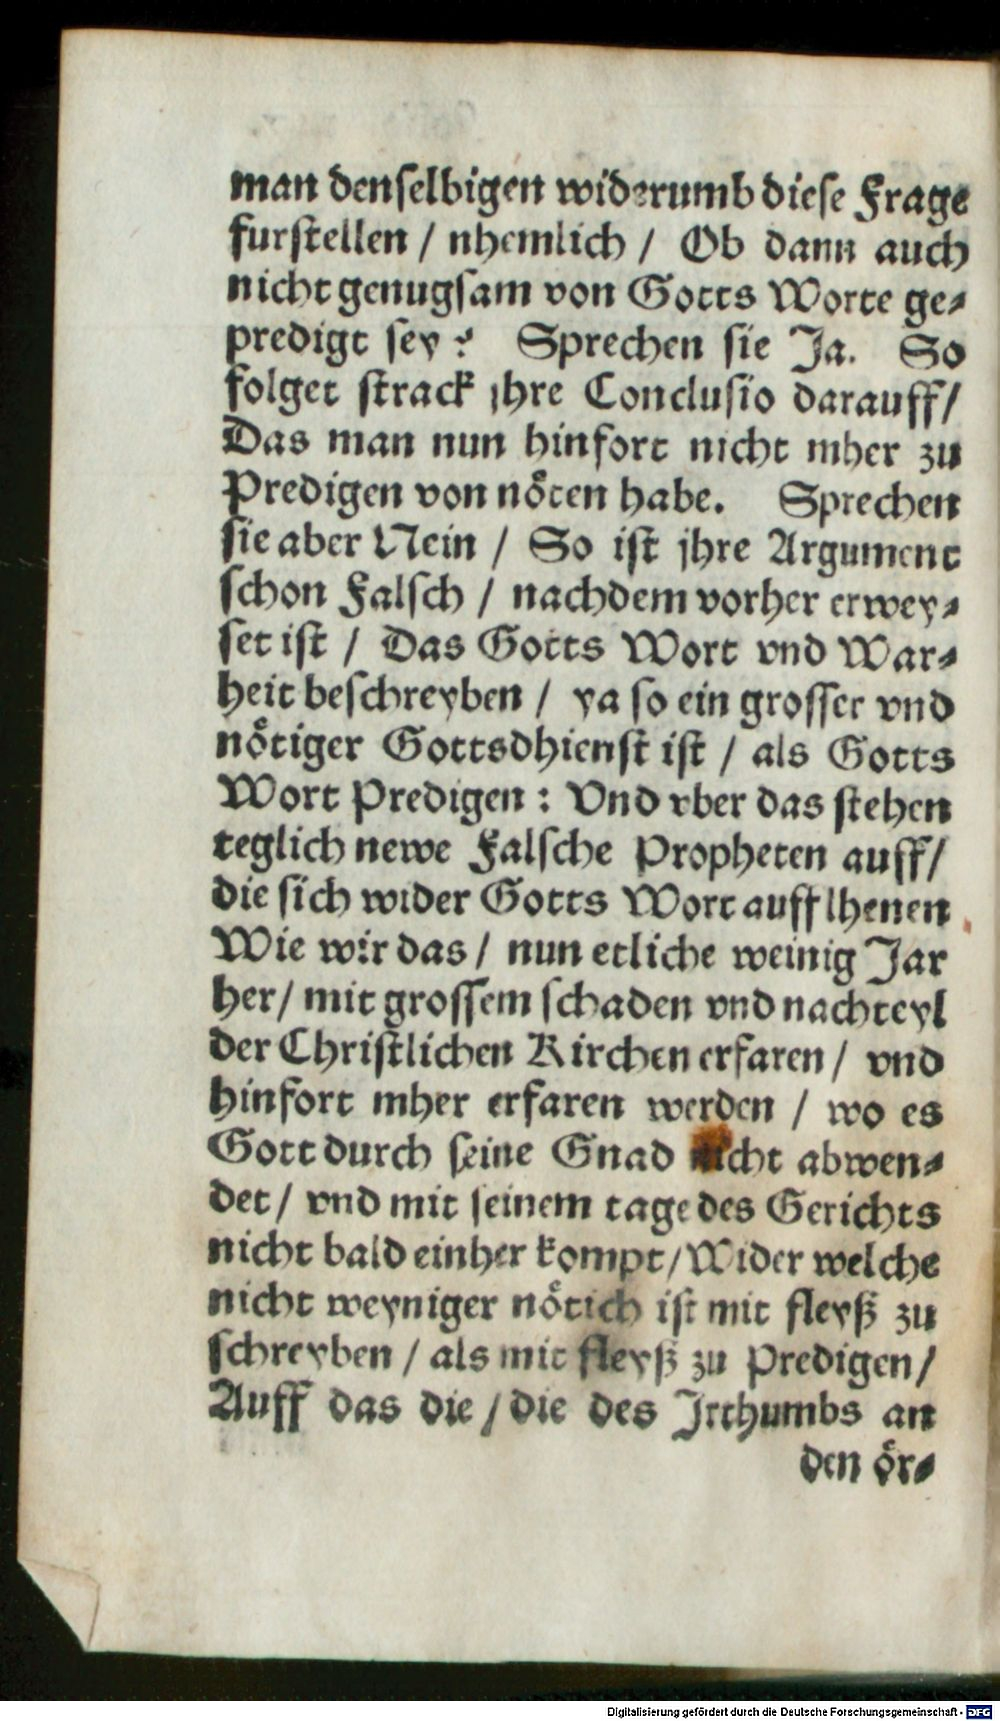 man denselbigen widerumb diese Frage
furstellen / nhemlich / Ob dann auch
nicht genugsam von Gotts Worte ge⸗
predigt sey? Sprechen sie Ja. So
folget strack jhre Conclusio darauff/
Das man nun hinfort nicht mher zu
Predigen von nöten habe. Sprechen
sie aber Nein / So ist jhre Argument
schon Falsch / nachdem vorher erwey⸗
set ist / Das Gotts Wort vnd War⸗
heit beschreyben / ya so ein grosser vnd
nötiger Gottsdhienst ist / als Gotts
Wort Predigen : Vnd vber das stehen
teglich newe Falsche Propheten auff/
die sich wider Gotts Wort aufflhenen
Wie wir das / nun etliche weinig Jar
her/ mit grossem schaden vnd nachteyl
der Christlichen Kirchen erfaren / vnd
hinfort mher erfaren werden / wo es
Gott durch seine Gnad nicht abwen⸗
det / vnd mit seinem tage des Gerichts
nicht bald einher kompt / Wider welche
nicht weyniger nötich ist mit fleyß zu
schreyben / als mit fleyß zu Predigen/
Auff das die / die des Jrthumbs an
den ör⸗
Digitalisierung gefördert durch die Deutsche Forschungsgemeinschaft - DFG